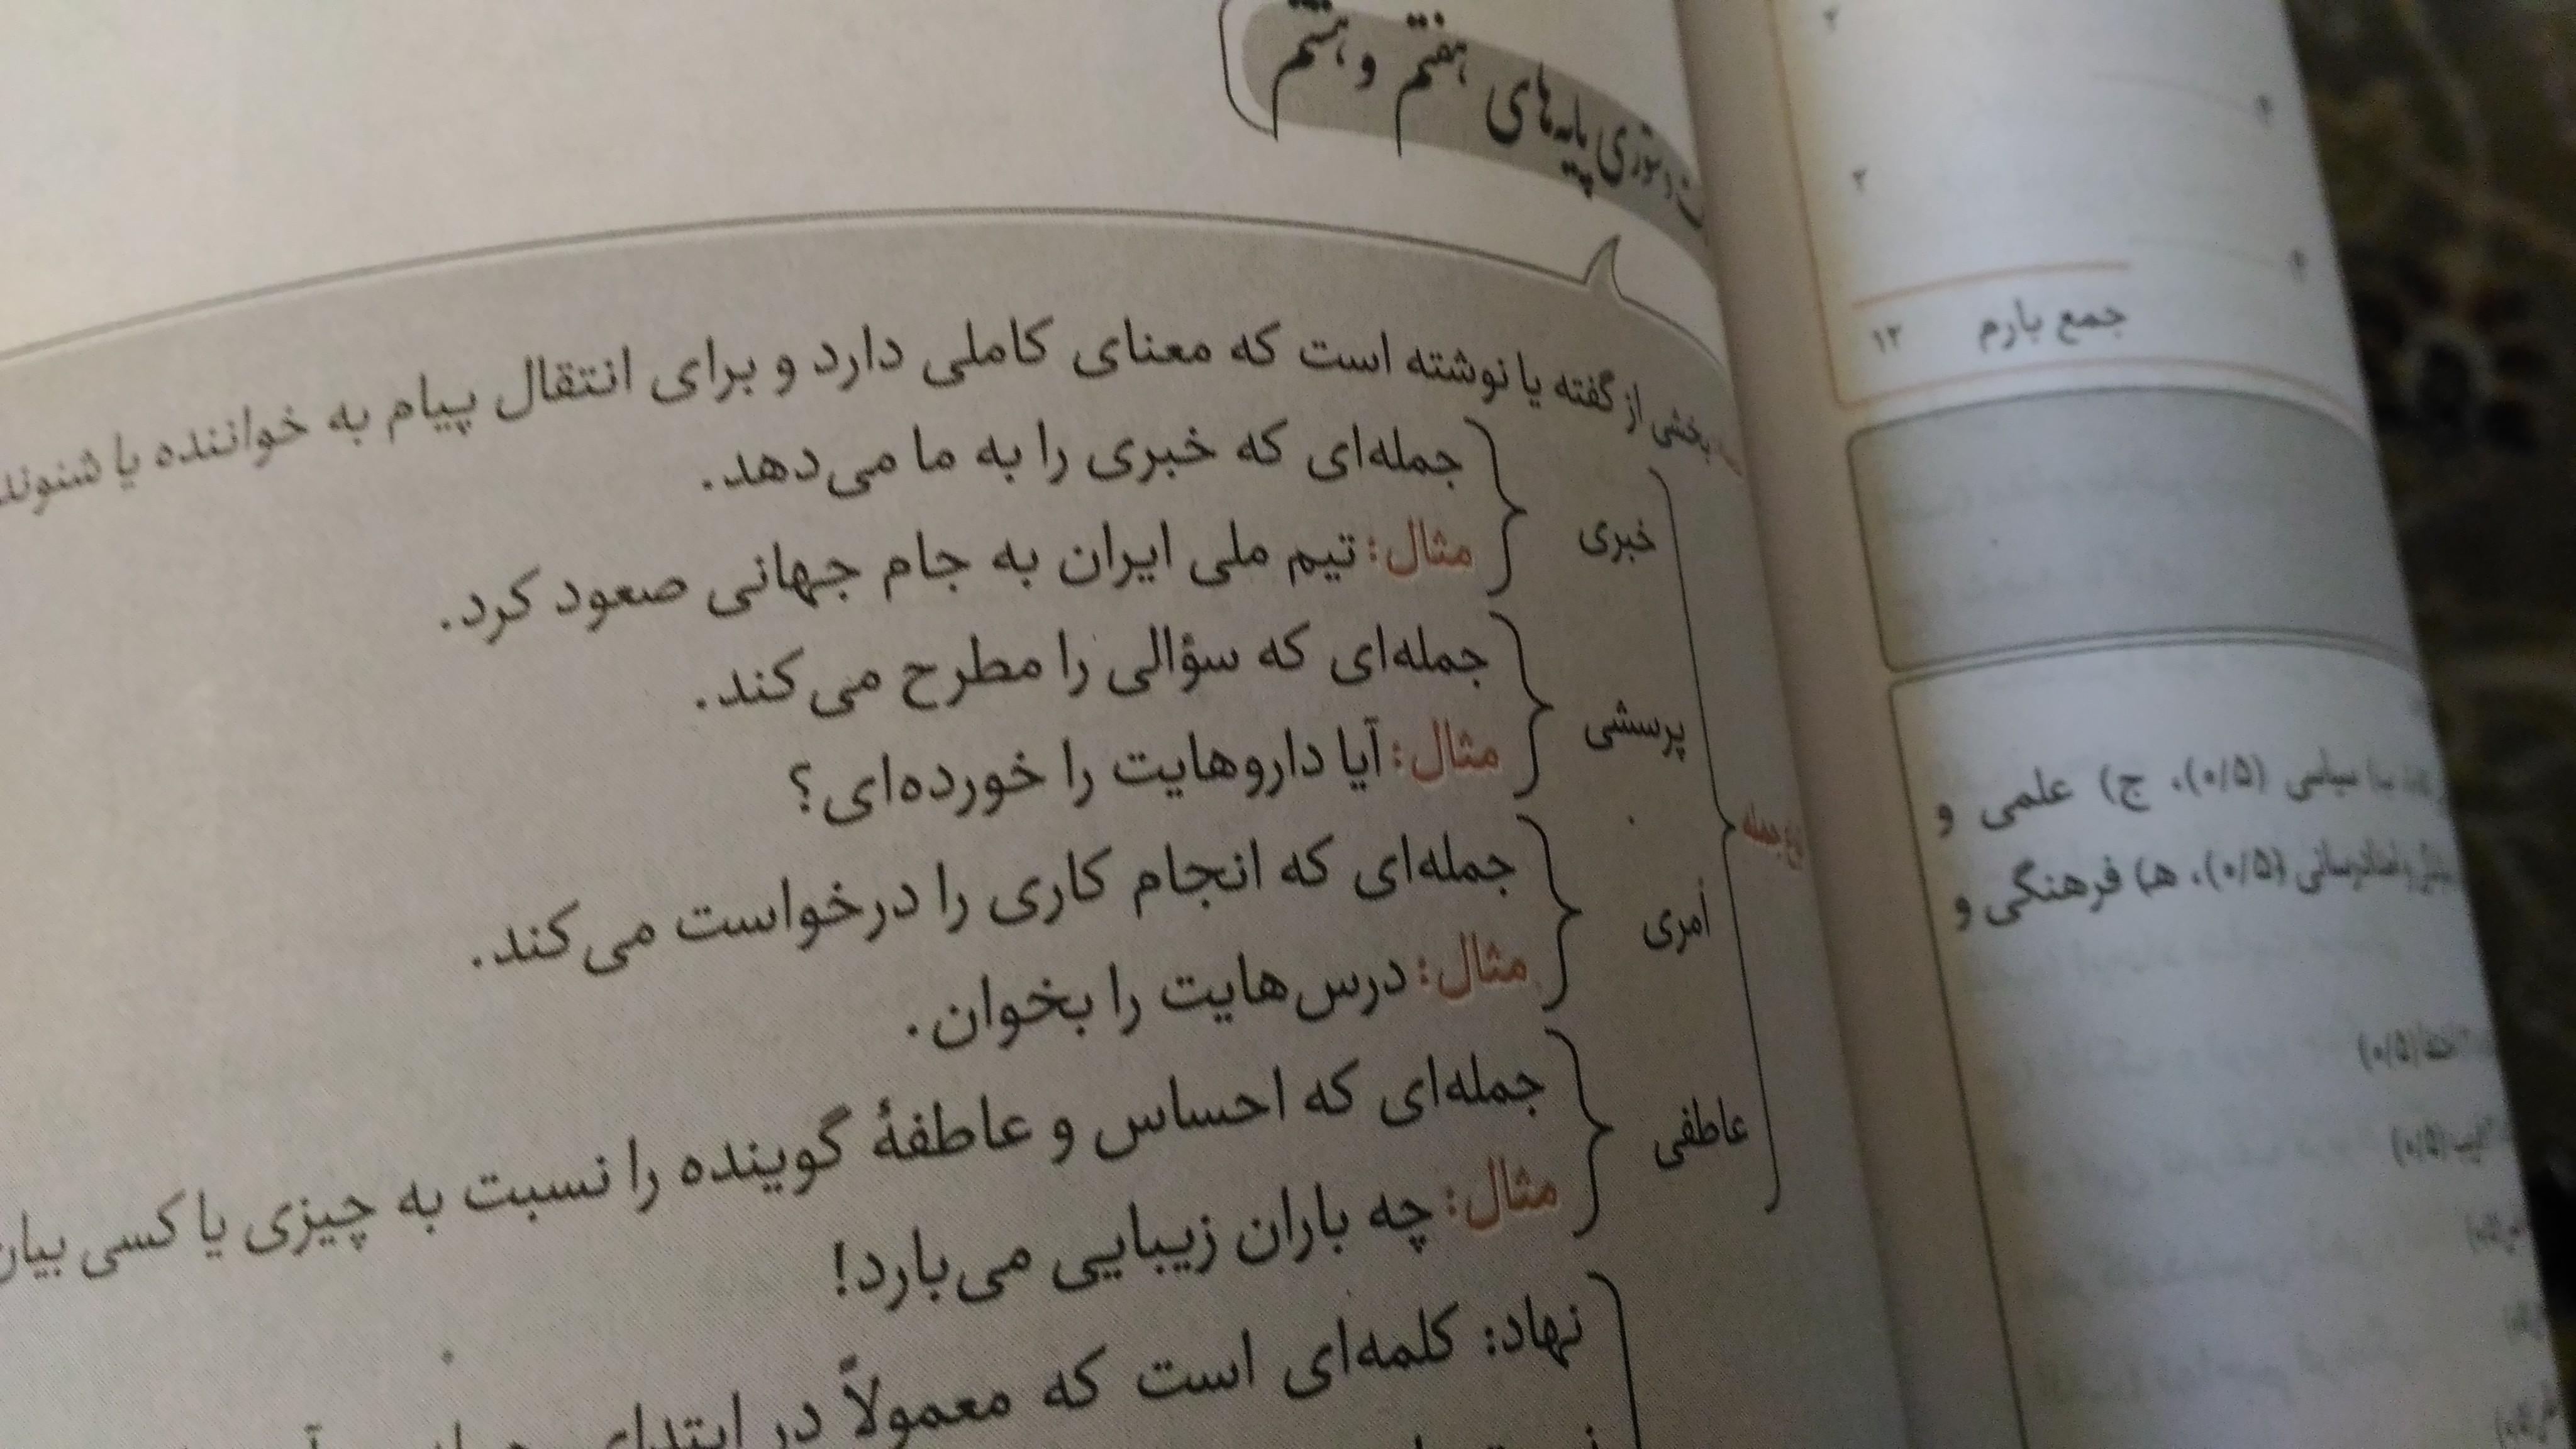 دستوری پایه‌های هفتم و هشتم
بخشی از گفته یا نوشته است که معنای کاملی دارد و برای انتقال پیام به خواننده یا
نوع جمله
خبری
جمله‌ای که خبری را به ما می‌دهد.
مثال: تیم ملی ایران به جام جهانی صعود کرد.
پرسشی
جمله‌ای که سؤالی را مطرح می‌کند.
مثال: آیا داروهایت را خورده‌ای؟
أمری
جمله‌ای که انجام کاری را درخواست می‌کند.
مثال: درس‌هایت را بخوان.
عاطفی
جمله‌ای که احساس و عاطفهٔ گوینده را نسبت به چیزی یا کسی
مثال: چه باران زیبایی می‌بارد!
نهاد: کلمه‌ای است که معمولاً در ابتدای
۲
۲
جمع بارم ۱۲
سیاسی (۰/۵)، ج) علمی و
(۰/۵)، هـ) فرهنگی و
(۰/۵)
(۰/۵)